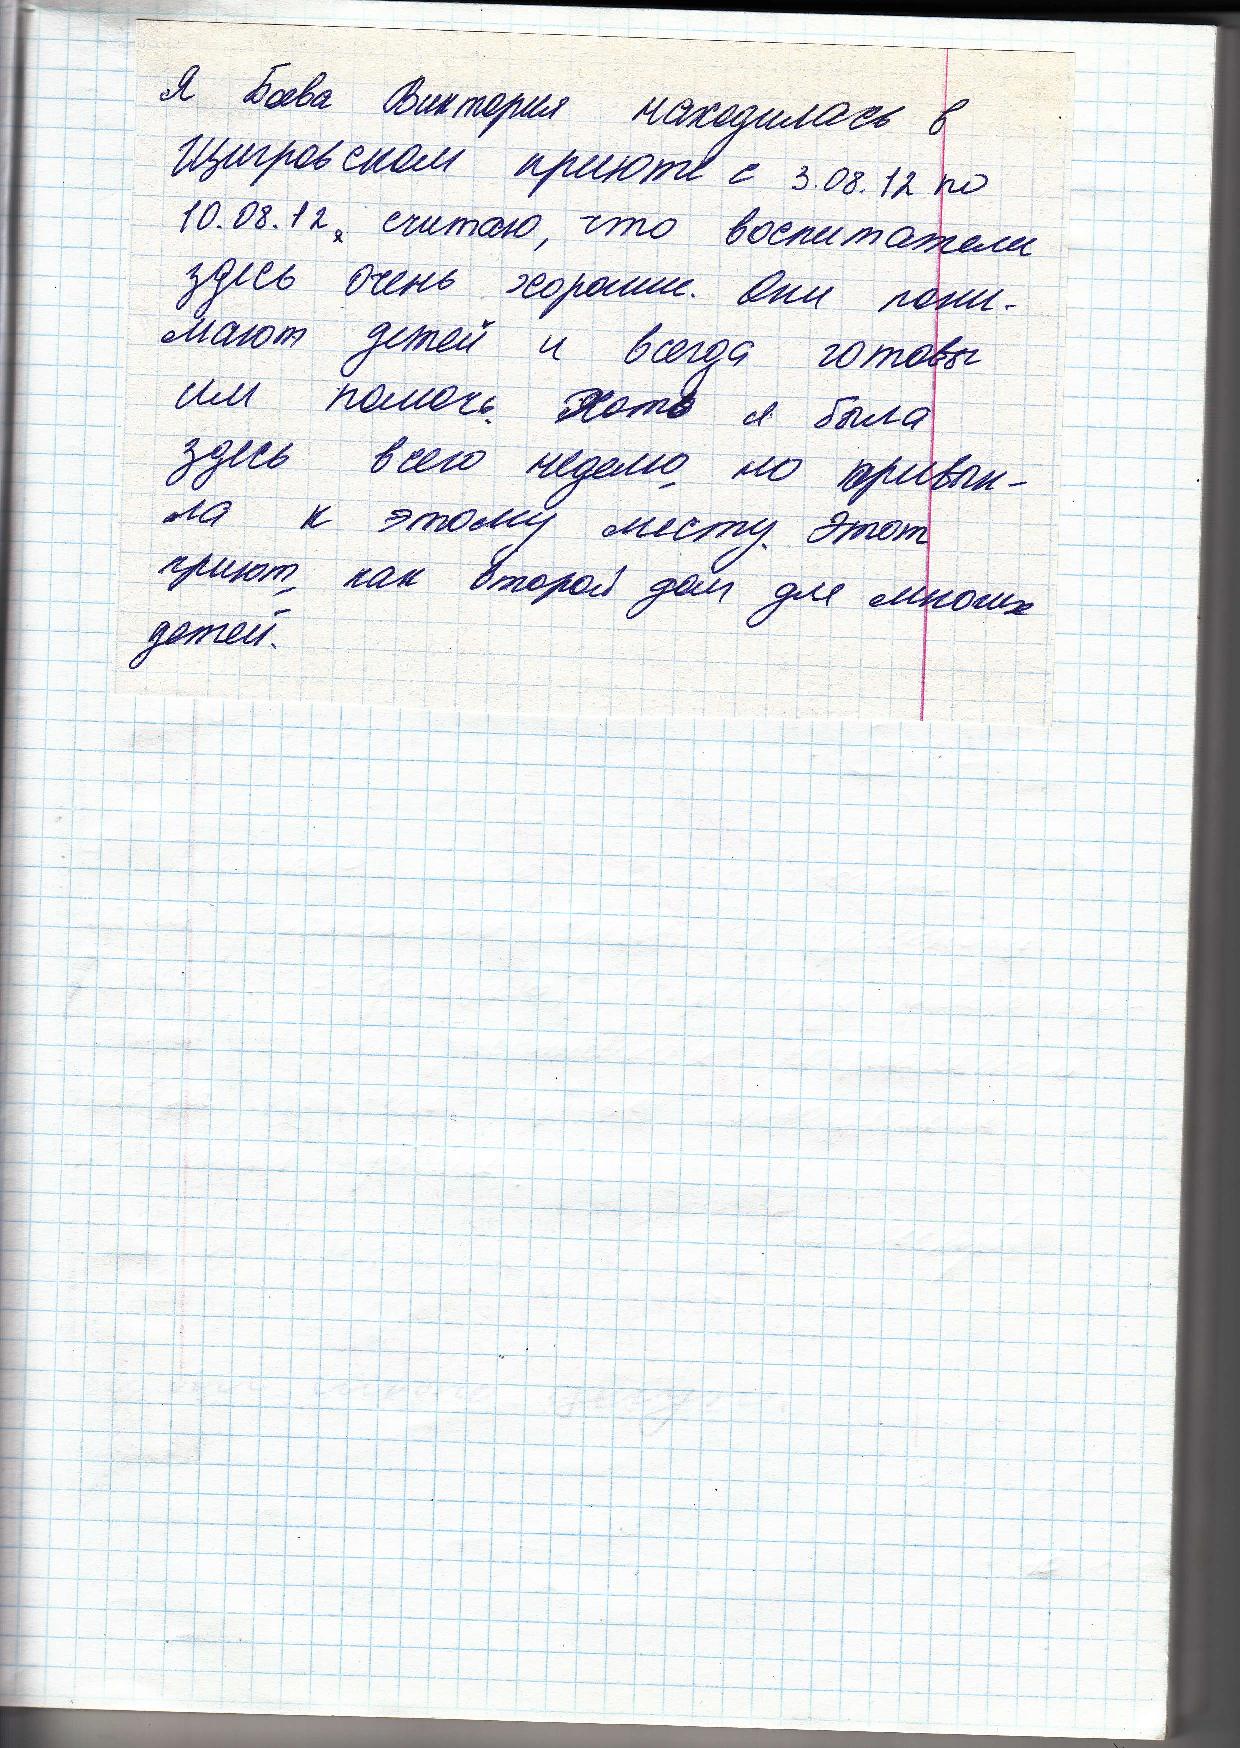 Я Боева Виктория находилась в
Щигровском приюте с 3.08.12 по
10.08.12, я считаю, что воспитатели
здесь очень хорошие. Они пони-
мают детей и всегда готовы
им помочь. Хоть я была
здесь всего неделю, но привык-
ла к этому месту. Этот
приют, как второй дом для многих
детей.